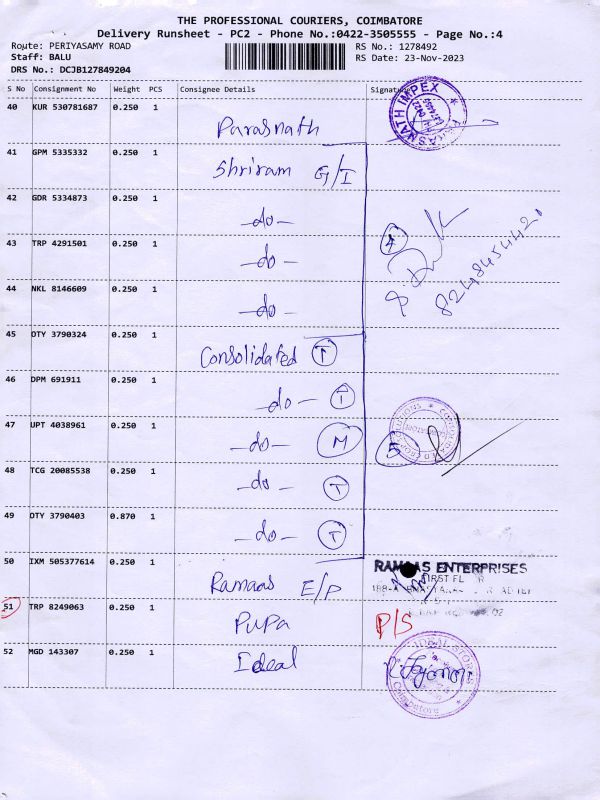 THE PROFESSIONAL COURIERS, COIMBATORE
Delivery Runsheet - PC2 - Phone No.:0422-3505555 - Page No.:4
Route: PERIYASAMY ROAD
RS No.: 1278492
Staff: BALU
RS Date: 23-Nov-2023
DRS No.: DCJB127849204
S No Consignment No Weight PCS Consignee Details Signature
40 KUR 530781687 0.250 1 Parasnath
PARASNATH IMPEX
41 GPM 5335332 0.250 1 Shriram G/I
42 GDR 5334873 0.250 1 -do-
43 TRP 4291501 0.250 1 -do- 4
8248454420
44 NKL 8146609 0.250 1 -do-
45 OTY 3790324 0.250 1 Consolidated T
46 DPM 691911 0.250 1 -do- T
47 UPT 4038961 0.250 1 -do- M 5
48 TCG 20085538 0.250 1 -do- T
49 OTY 3790403 0.870 1 -do- T
50 IXM 505377614 0.250 1 Ramaas E/P
RAMAAS ENTERPRISES
51 TRP 8249063 0.250 1 Pupa P/S
52 MGD 143307 0.250 1 Ideal
IDEAL STORES
Coimbatore